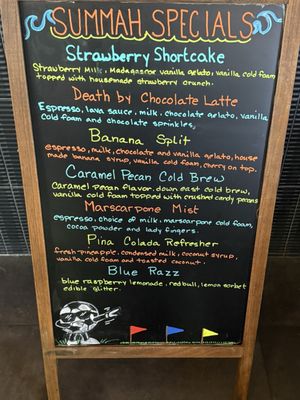 SUMMAH SPECIALS
Strawberry Shortcake
Strawberry Milk, Madagascar vanilla gelato, vanilla cold foam
topped with housemade strawberry crunch.
Death by Chocolate Latte
Espresso, lava sauce, milk, chocolate gelato, vanilla
Cold foam and chocolate sprinkles,
Banana Split
espresso, milk, chocolate and vanilla gelato, house
made banana syrup, vanilla cold foam, cherry on top.
Caramel Pecan Cold Brew
Caramel pecan flavor, down east cold brew,
vanilla cold foam topped with crushed candy pecans
Marscarpone Mist
espresso, choice of milk, marscarpone cold foam,
cocoa powder and lady fingers.
Pina Colada Refresher
fresh pineapple, condensed milk, coconut syrup,
vanilla cold foam and toasted coconut.
Blue Razz
blue raspberry lemonade, redbull, lemon sorbet
edible glitter.